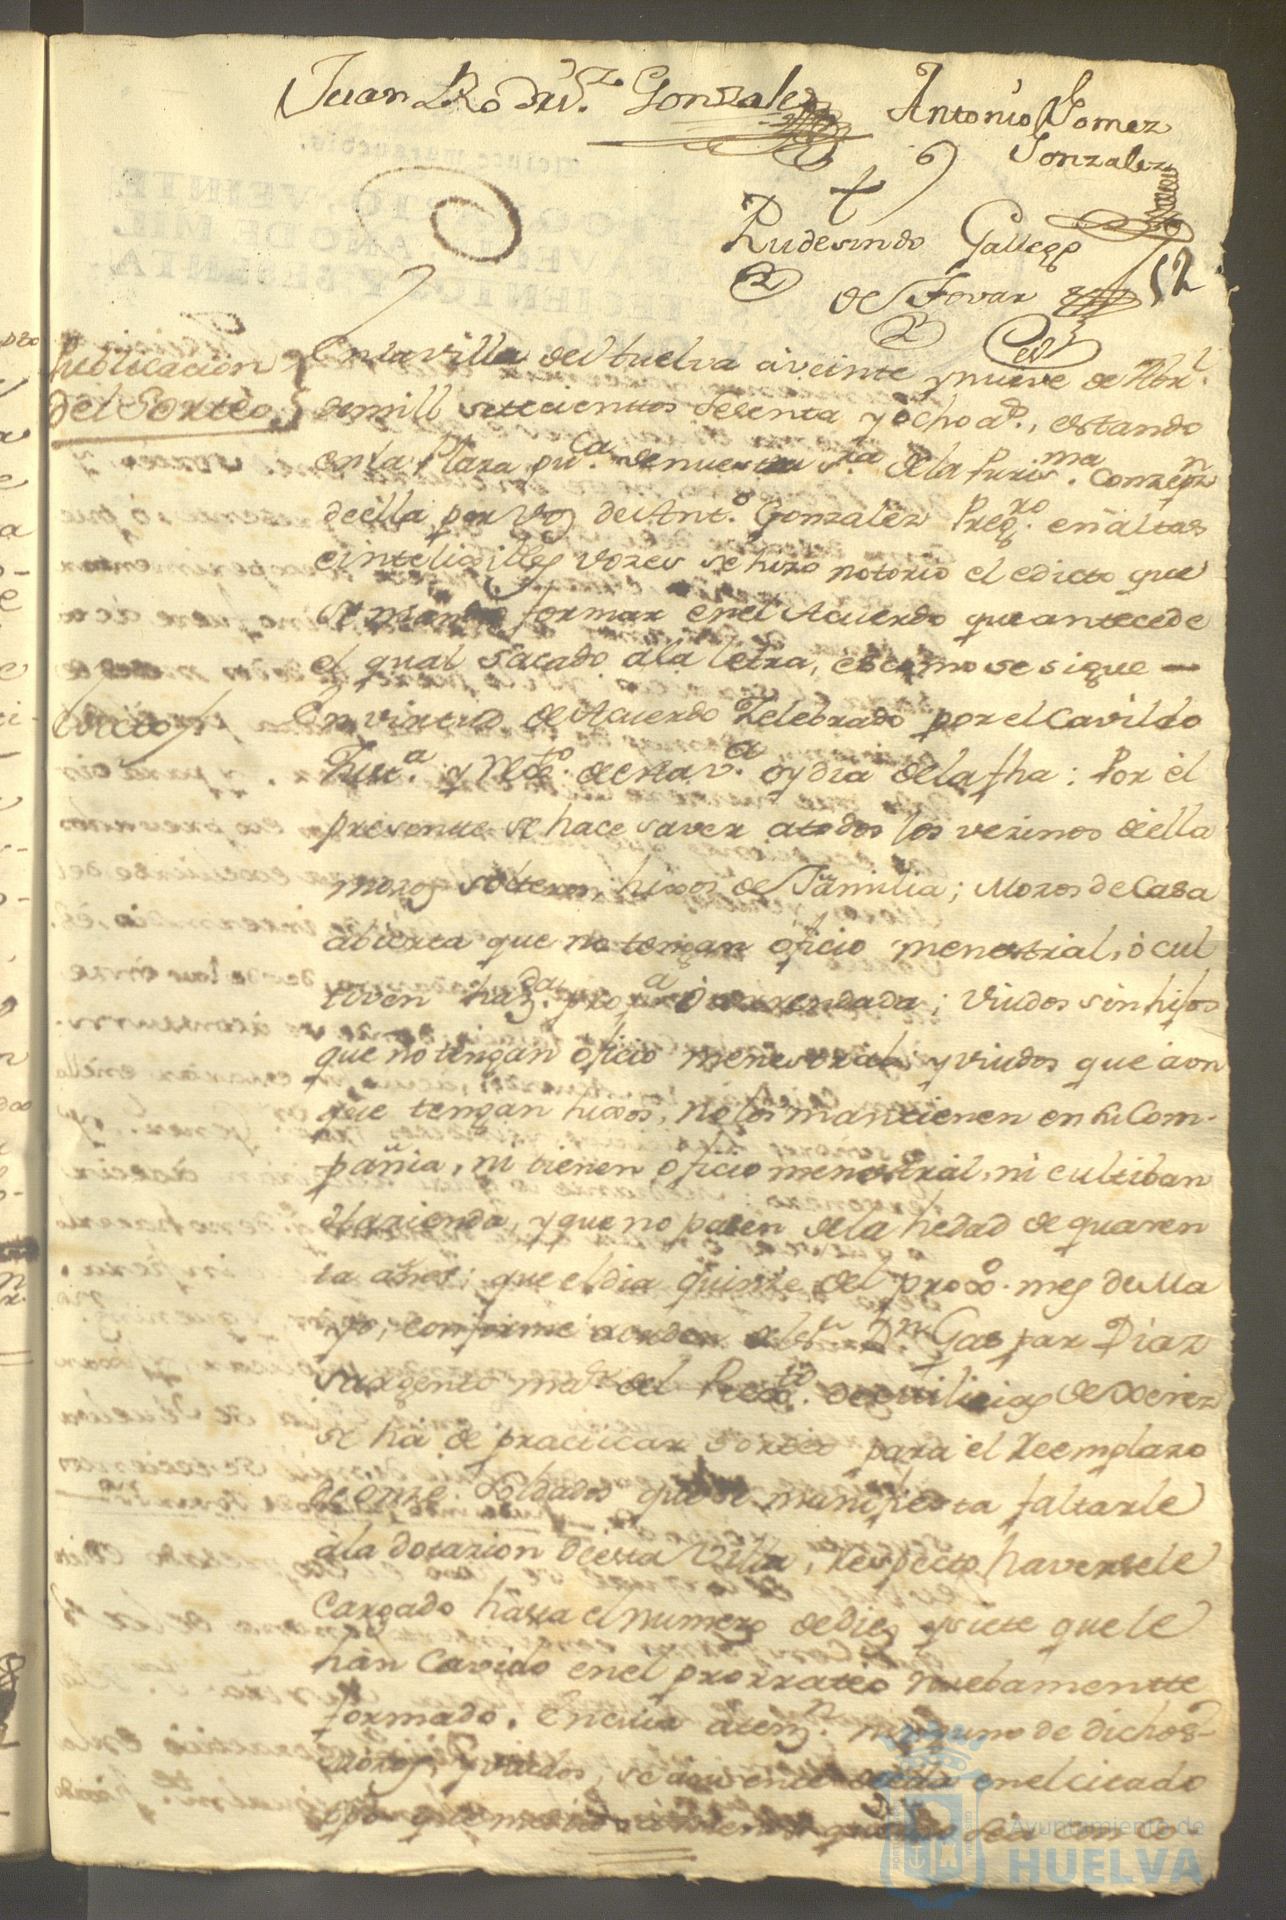 Juan Rodrig.z Gonzalez
Antonio Gomez
Gonzalez
Rudesindo Gallegos
de Tovar
52
Publicacion
del Sorteo
En la villa de Huelva à veinte y nueve de Abr.l
de mill setecienttos sesenta y ocho a.s, estando
en la Plaza pu.ca de nuestra s.ra de la Puris.ma Conzepn
de ella por voz de Ant.o Gonzalez Preg.ro en altas
e inteligibles vozes se hizo notorio el edicto que
se mando formar en el Acuerdo que antecede
el qual sacado a la letra, es como se sigue —
Edicto
En virtud de Acuerdo Zelebrado por el Cavildo
Just.a y Rex.to de esta v.a oy dia de la fha: Por el
presente se hace saver a todos los vezinos de ella
mozos solteros, hixos de Familia; Mozos de Casa
abierta que no tengan oficio menestral, ò cul
tiven haz.da prop.a ò arrendada; Viudos sin hijos
que no tengan oficio menestral y viudos que aon
que tengan hixos, no los mantienen en su Com-
pañia, ni tienen oficio menestral, ni cultiban
Hazienda, y que no pasen de la hedad de quaren
ta años; que el dia quinze del proxo. mes de Ma
yo, conforme a orden del S.r D.n Gaspar Diaz
Sargento m.or del Rex.to de Milicias de Xerez
se ha de practicar sorteo para el Reemplazo
de onze Soldados que se manifiesta faltarle
à la dotazion de esta Villa, respecto haversele
cargado hasta el numero de diez y siete que le
hàn cavido en el prorrateo nuebamentte
formado. En cuia atenz.n ninguno de dichos
mozos, y viudos, se ausente de ella en el citado